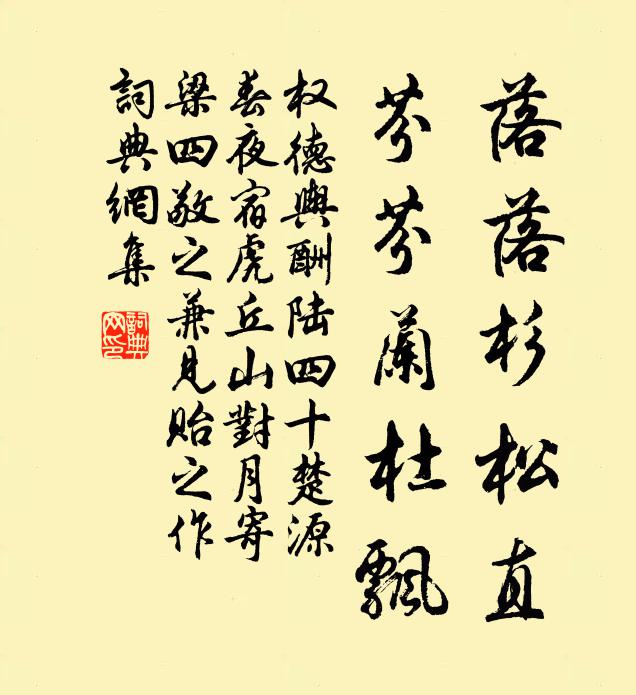 落落杉松直
芬芬蘭杜飄
权德輿酬陆四十楚源
春夜宿虎丘山對月寄
梁四敬之兼見贻之作
詞典網集
詞典
网印